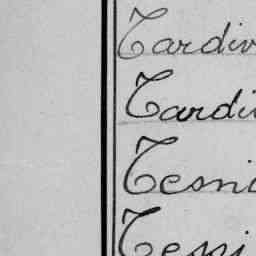 Tardiv
Tardi
Tesni
Tessi